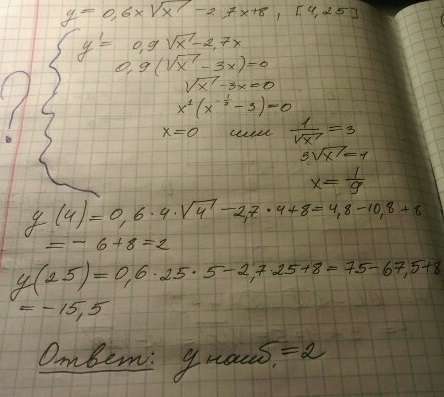 y = 0,6x√x - 2,7x+8, [4,25]
y' = 0,9√x - 2,7x
0,9(√x - 3x)=0
√x - 3x=0
x¹(x^-½ - 3)=0
x=0 или 1/√x = 3
3√x = 1
x = 1/9
?
y(4) = 0,6 · 4 · √4 - 2,7 · 4+8 = 4,8 - 10,8 + 8
= - 6+8 = 2
y(25) = 0,6 · 25 · 5 - 2,7 · 25+8 = 75 - 67,5+8
= -15,5
Ответ: y наиб. = 2